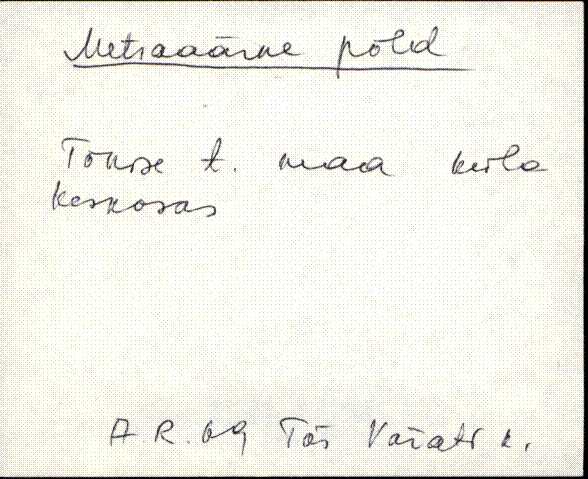 Metsaäärne põld
Tõnise t. maa küla
keskosas
A. R. 69 Tõs Varati k.